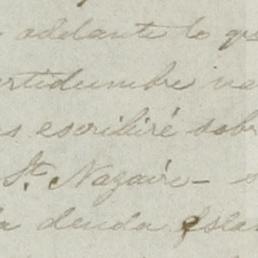 adelante lo q
ertidumbre
s escribiré sobr
St. Nazaire –
la deuda Esla